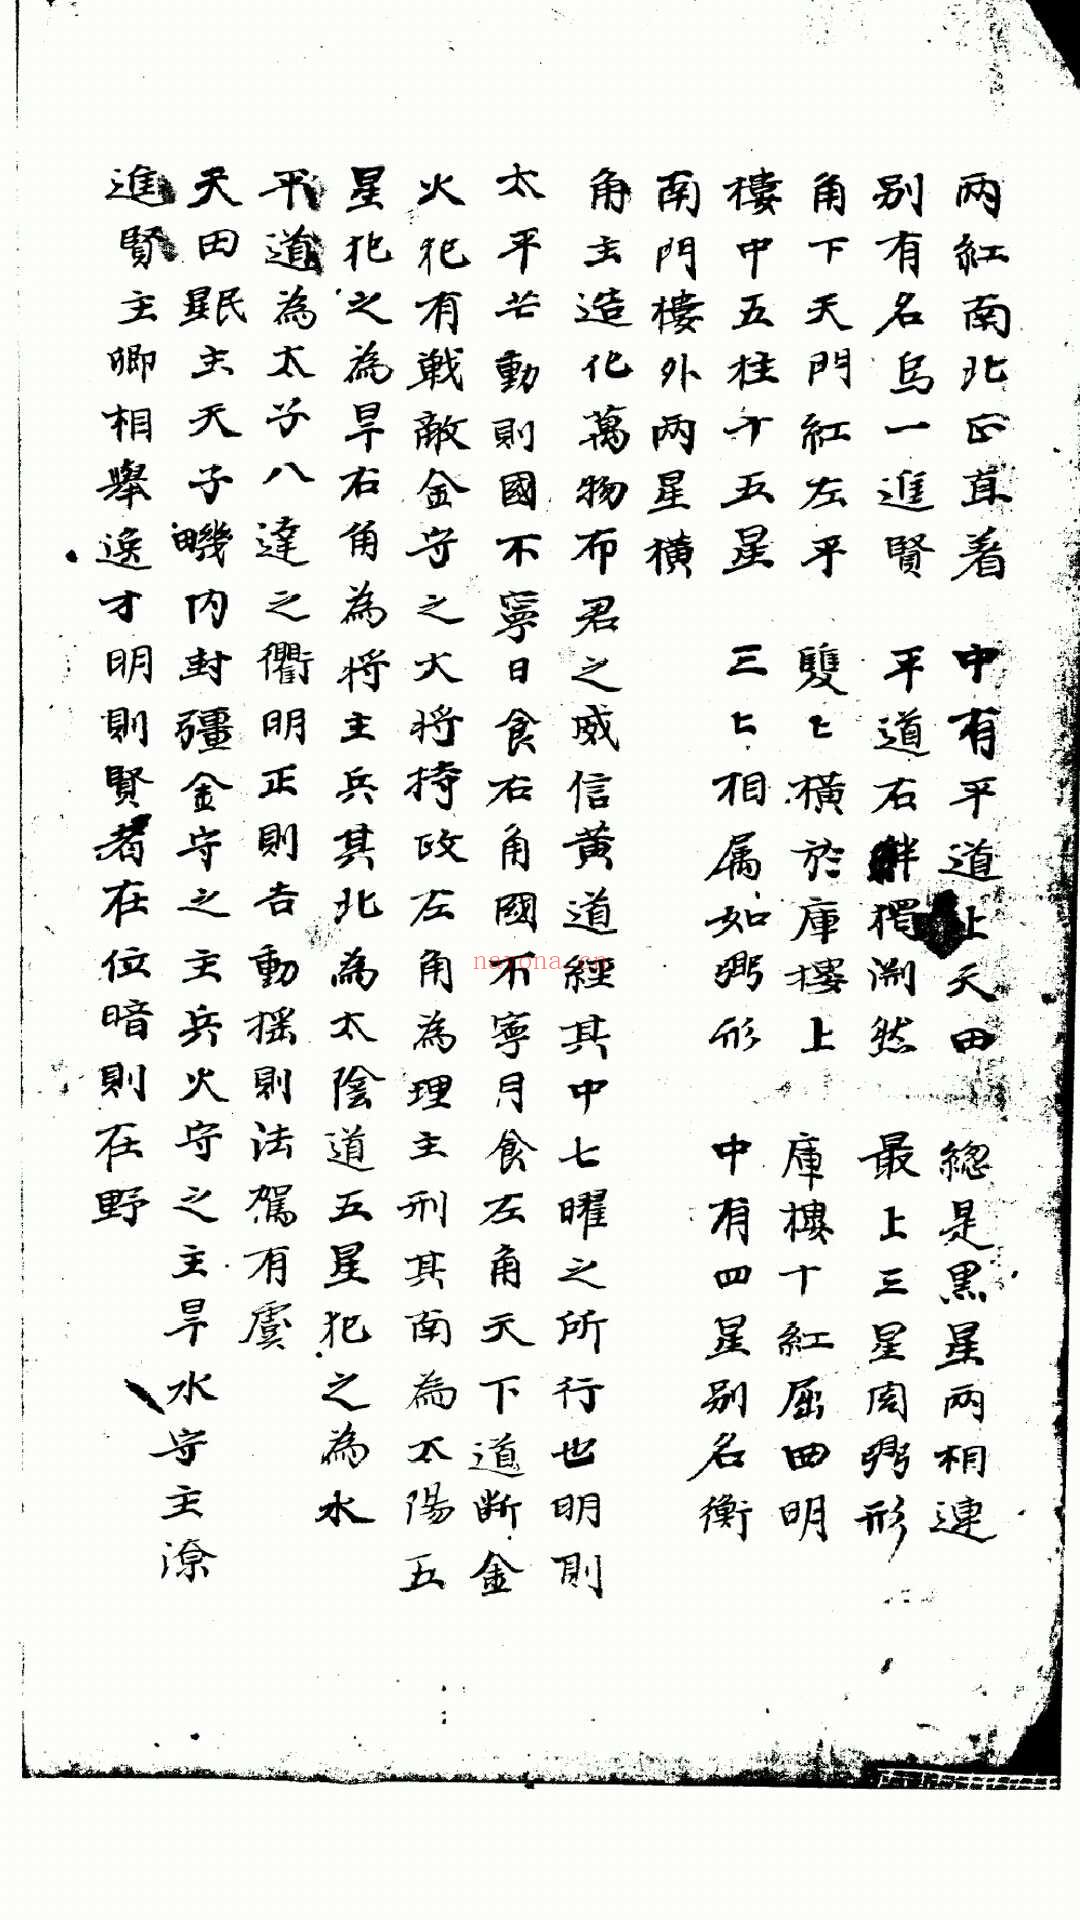 兩紅南北正直着　中有平道上天田　總是黒星兩相連
别有名烏一進賢　平道右畔獨淵然　最上三星周鼎形
角下天門紅左平　雙〻横於庫樓上　庫樓十紅屈曲明
樓中五柱十五星　三〻相属如鼎形　中有四星别名衡
南門樓外兩星横
角主造化萬物布君之威信黄道經其中七曜之所行也明則
太平芒動則國不寧日食右角國不寧月食左角天下道断金
火犯有戦敵金守之大将持政左角為理主刑其南為太陽五
星犯之為旱右角為将主兵其北為太陰道五星犯之為水
平道為太子八達之衢明正則吉動揺則法駕有虞
天田星民主天子畿内封疆金守之主兵火守之主旱水守主潦
進賢主卿相舉逸才明則賢者在位暗則在野
nayona.cn